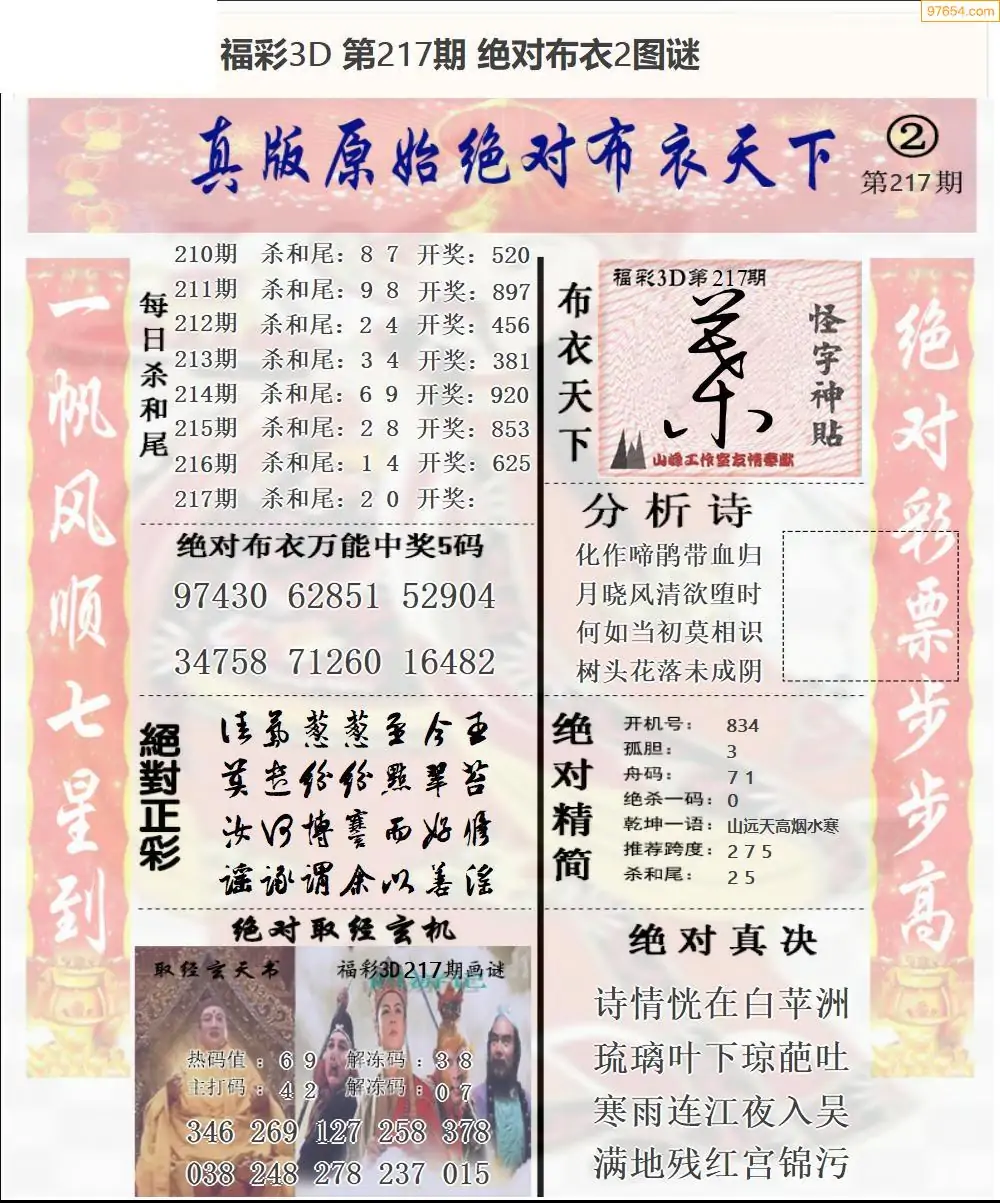 97654.com
福彩3D 第217期 绝对布衣2图谜
真版原始绝对布衣天下
②
第217期
一帆风顺七星到
每日杀和尾
210期 杀和尾：8 7 开奖：520
211期 杀和尾：9 8 开奖：897
212期 杀和尾：2 4 开奖：456
213期 杀和尾：3 4 开奖：381
214期 杀和尾：6 9 开奖：920
215期 杀和尾：2 8 开奖：853
216期 杀和尾：1 4 开奖：625
217期 杀和尾：2 0 开奖：
绝对布衣万能中奖5码
97430 62851 52904
34758 71260 16482
絕對正彩
绝对取经玄机
取经玄天书
福彩3D217期画谜
热码值：6 9 解冻码：3 8
主打码：4 2 解冻码：0 7
346 269 127 258 378
038 248 278 237 015
布衣天下
福彩3D第217期
怪字神貼
山峰工作室友情奉献
分析诗
化作啼鹃带血归
月晓风清欲堕时
何如当初莫相识
树头花落未成阴
绝对精简
开机号：834
孤胆：3
舟码：7 1
绝杀一码：0
乾坤一语：山远天高烟水寒
推荐跨度：2 7 5
杀和尾：2 5
绝对真决
诗情恍在白苹洲
琉璃叶下琼葩吐
寒雨连江夜入吴
满地残红宫锦污
绝对彩票步步高